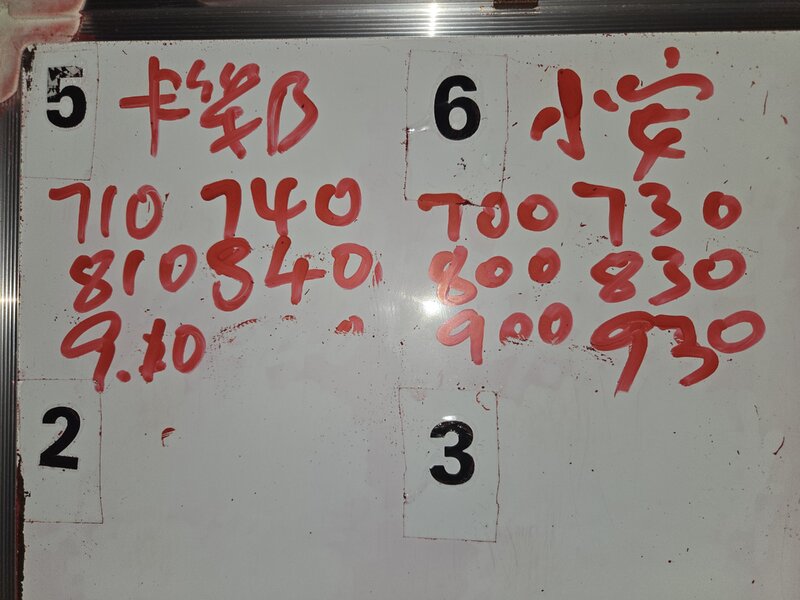 5 卡
710 740
810 840
9.10
6 小安
700 730
800 830
900 930
2
3